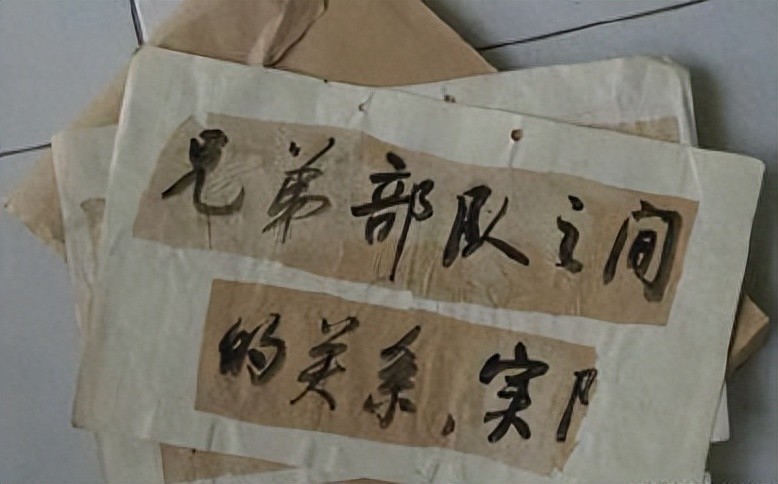 兄弟部队之间
的关系，实